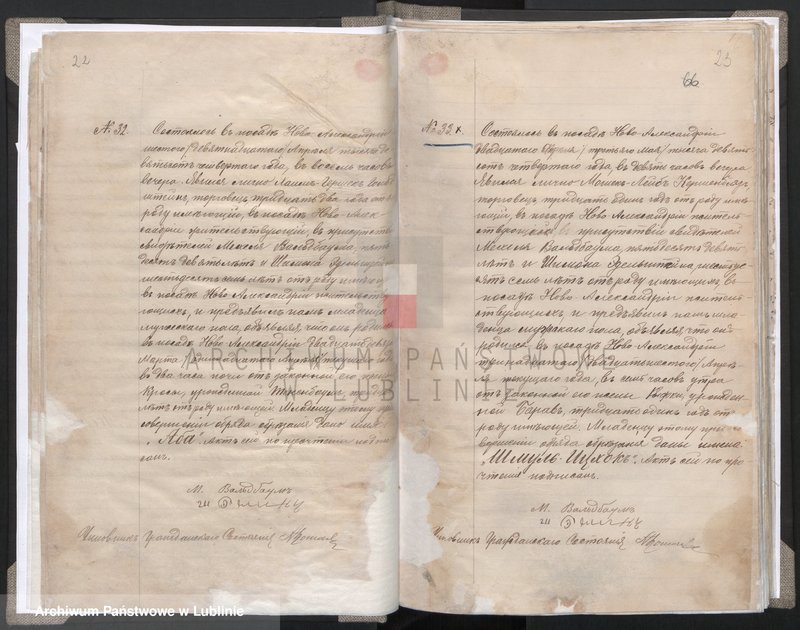 22
№ 32.
Состоялось въ посадѣ Ново Александріи
шестого /девятнадцатого/ Апрѣля тысяча де
вятьсотъ четвертого года, въ восемь часовъ
вечера. Явился лично
торговецъ, тридцать два года отъ
роду имѣющій, въ посадѣ Ново Алек
сандріи жительствующій, въ присутств
свидѣтелей Мошека Вальдбаума, пять
десятъ девять лѣтъ и Шимона
шестьдесятъ семь лѣтъ отъ роду имѣющ
въ посадѣ Ново Александріи жительств
ующихъ, и предъявилъ намъ младенца
мужескаго пола, объявляя, что онъ родился
въ посадѣ Ново Александріи двадцать
Марта текущаго года
въ два часа ночи отъ законной его жены
урожденной
лѣтъ отъ роду имѣющей. Младенцу этому при
совершеніи обряда обрѣзанія дано имя
„Аба". Актъ сей по прочтеніи подпи
санъ.
М. Вальдбаумъ
Чиновникъ Гражданскаго Состоянія
23
66
№ 33 x.
Состоялось въ посадѣ Ново Александріи
двадцатого Апрѣля /третьяго мая/ тысяча девять
сотъ четвертого года, въ девять часовъ вечера
Явился лично Мошекъ-Лейбъ
торговецъ тридцати одинъ годъ отъ роду имѣ
ющій, въ посадѣ Ново Александріи житель
ствующій въ присутствіи свидѣтелей
Мошека Вальдбаума, пятидесяти девяти
лѣтъ и Шимона
ятъ семь лѣтъ отъ роду имѣющихъ, въ
посадѣ Ново Александріи житель
ствующихъ, и предъявилъ намъ мла
денца мужескаго пола, объявляя, что онъ
родился въ посадѣ Ново Александріи
тринадцатого /двадцатьшестого/ Апрѣ
ля текущаго года, въ семь часовъ утра
отъ законной его жены урожден
ной тридцати одинъ годъ отъ
роду имѣющей. Младенцу этому при со
вершеніи обряда обрѣзанія даны имена
„Шмуль-Ицхокъ". Актъ сей по про
чтеніи подписанъ.
М. Вальдбаумъ
Чиновникъ Гражданскаго Состоянія
ARCHIWUM PAŃSTWOWE
W LUBLINIE
Archiwum Państwowe w Lublinie